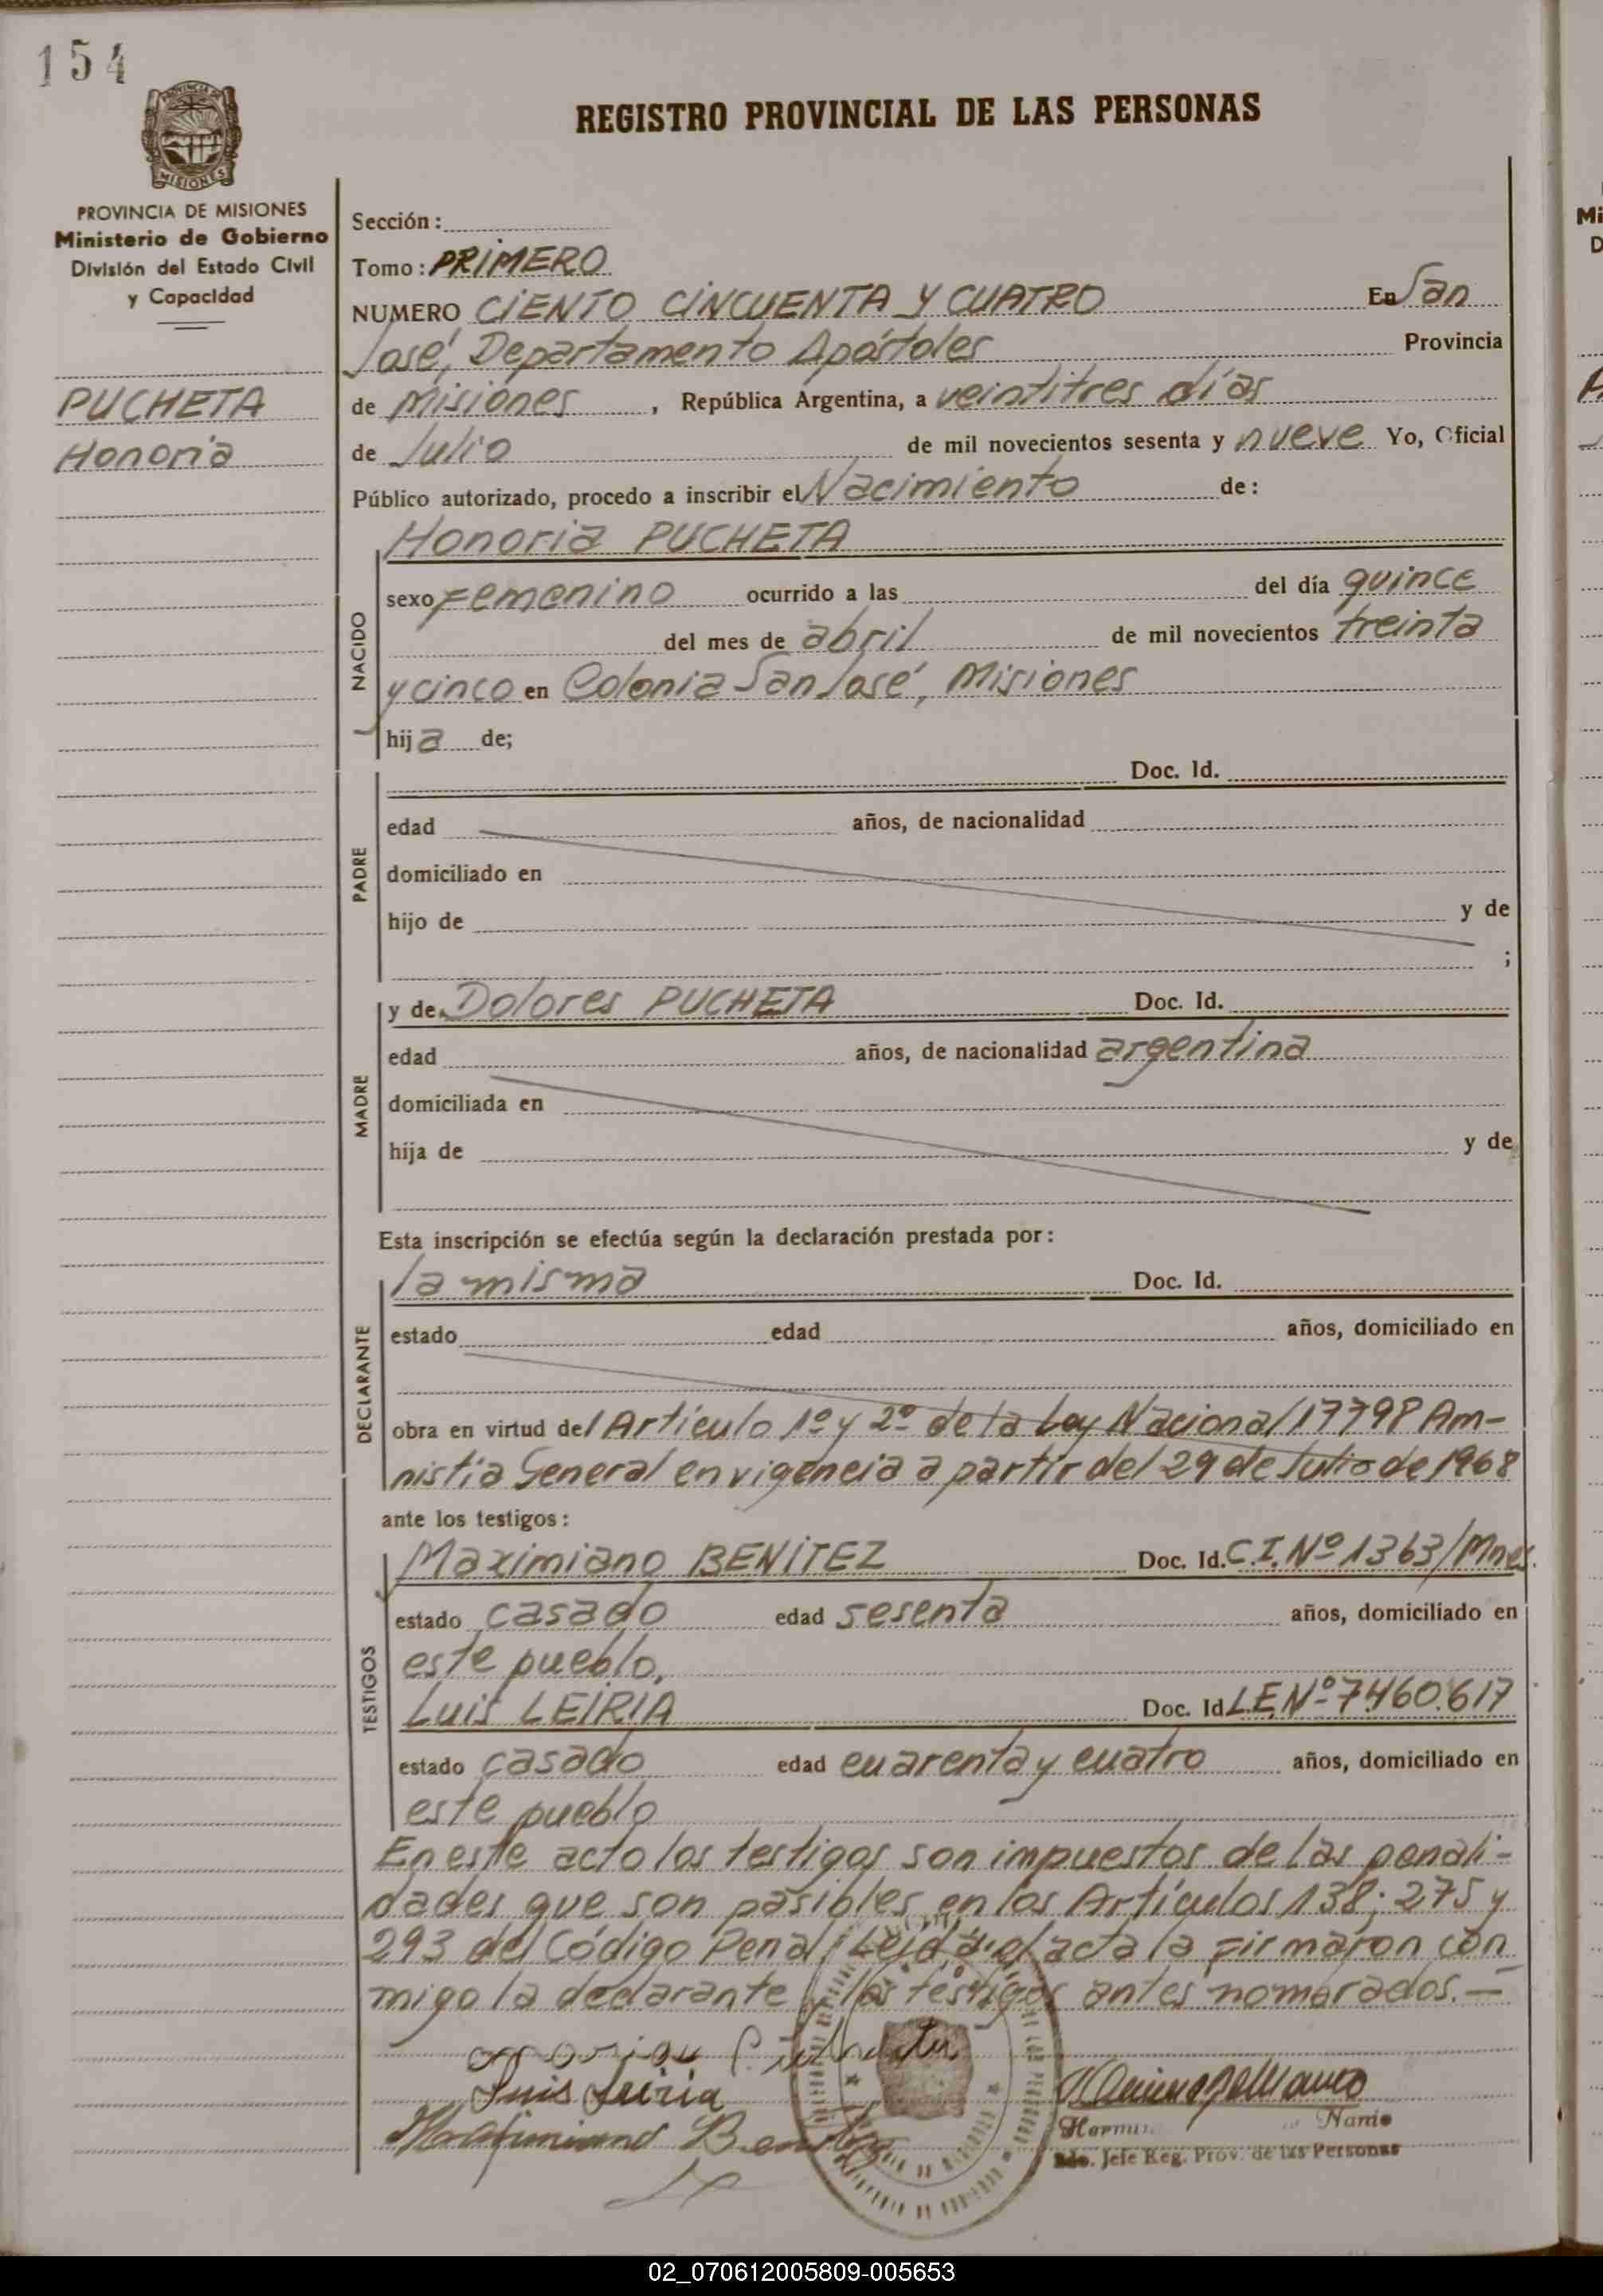 154
PROVINCIA DE
MISIONES
REGISTRO PROVINCIAL DE LAS PERSONAS
PROVINCIA DE MISIONES
Ministerio de Gobierno
División del Estado Civil
y Capacidad
PUCHETA
Honoria
Sección:
Tomo: PRIMERO
NUMERO CIENTO CINCUENTA Y CUATRO En San
José, Departamento Apóstoles Provincia
de Misiones, República Argentina, a veintitres días
de Julio de mil novecientos sesenta y nueve Yo, Oficial
Público autorizado, procedo a inscribir el Nacimiento de:
NACIDO
Honoria PUCHETA
sexo Femenino ocurrido a las del día quince
del mes de abril de mil novecientos treinta
y cinco en Colonia San José, Misiones
hija de;
PADRE
Doc. Id.
edad años, de nacionalidad
domiciliado en
hijo de y de
;
MADRE
y de Dolores PUCHETA Doc. Id.
edad años, de nacionalidad argentina
domiciliada en
hija de y de
Esta inscripción se efectúa según la declaración prestada por:
DECLARANTE
la misma Doc. Id.
estado edad años, domiciliado en
obra en virtud del Artículo 1º y 2º de la Ley Nacional 17798 Am-
nistía General en vigencia a partir del 29 de Julio de 1968
ante los testigos:
TESTIGOS
Maximiano BENITEZ Doc. Id. C.I. Nº 1363/Mnes.
estado casado edad sesenta años, domiciliado en
este pueblo.
Luis LEIRIA Doc. Id L.E. Nº 7.460.617
estado casado edad cuarenta y cuatro años, domiciliado en
este pueblo
En este acto los testigos son impuestos de las penali-
dades que son pasibles en los Artículos 138; 275 y
293 del Código Penal; Leída el acta la firmaron con
migo la declarante y los testigos antes nombrados.—
Luis Leiria
Maximiano Benitez
Jefe Reg. Prov. de las Personas
02_070612005809-005653